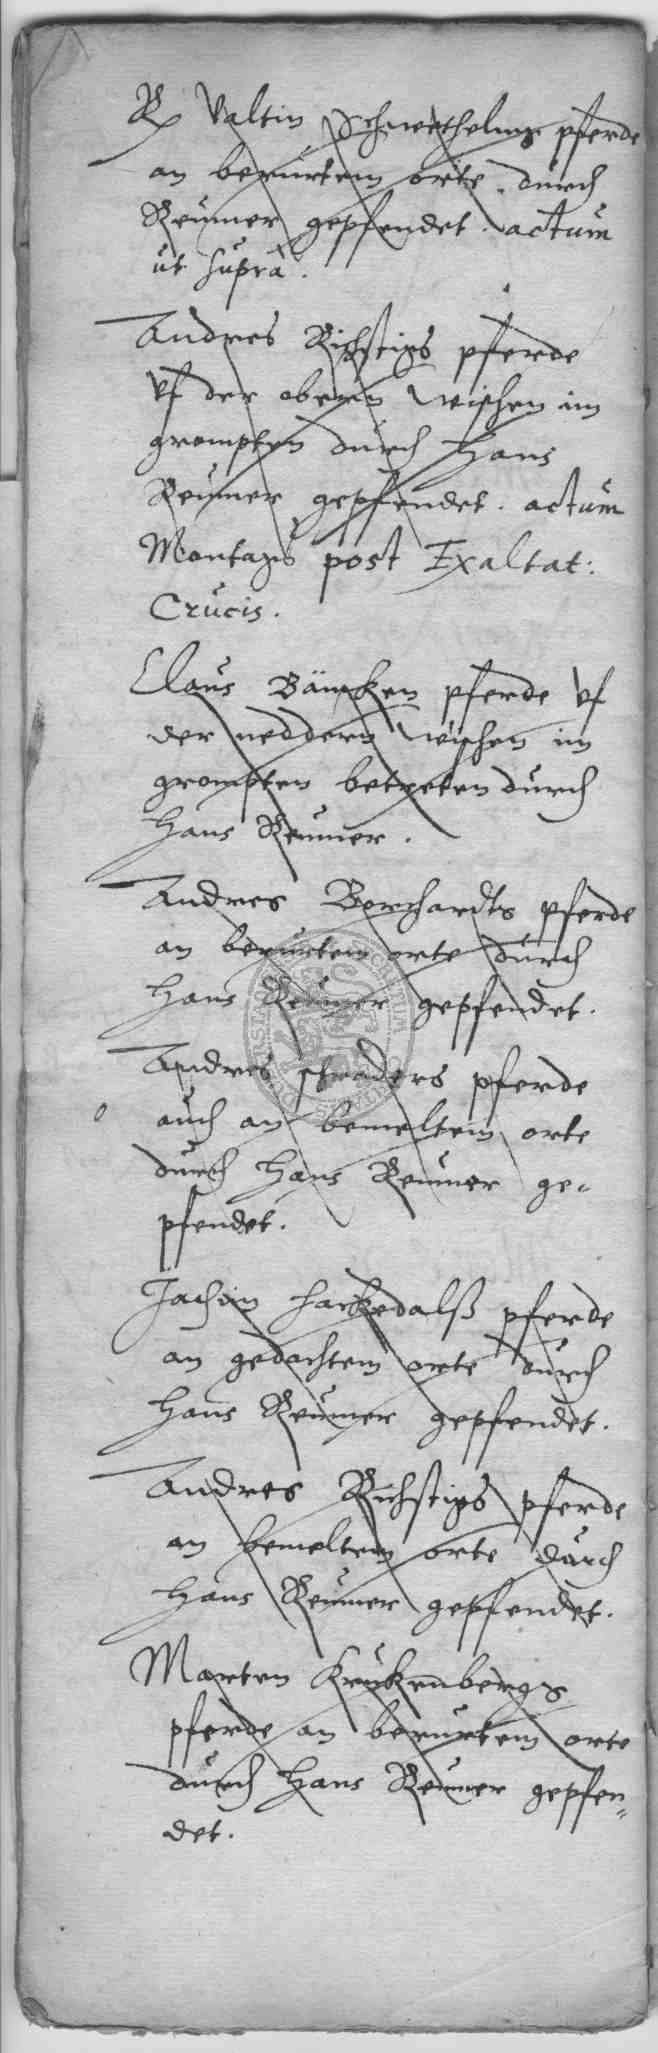 Valtin Schwethelms pferde
an berurtem orte durch
Reumer gepfendet. actum
ut supra.
Andres Richstigs pferde
vf der obern wischen im
grompten durch Hans
Reumer gepfendet. actum
Montags post Exaltat:
Crucis.
Claus Bäncken pferde vf
der neddern wischen im
grompten betreten durch
Hans Reumer.
Andres Borchardts pferde
an berurtem orte durch
Hans Reumer gepfendet.
Andres schraders pferde
auch an bemeltem orte
durch Hans Reumer ge-
pfendet.
Jachim pferde
an gedachtem orte durch
Hans Reumer gepfendet.
Andres Richstigs pferde
an bemeltem orte durch
Hans Reumer gepfendet.
Marten Krukenbergs
pferde an berurtem orte
durch Hans Reumer gepfen-
det.